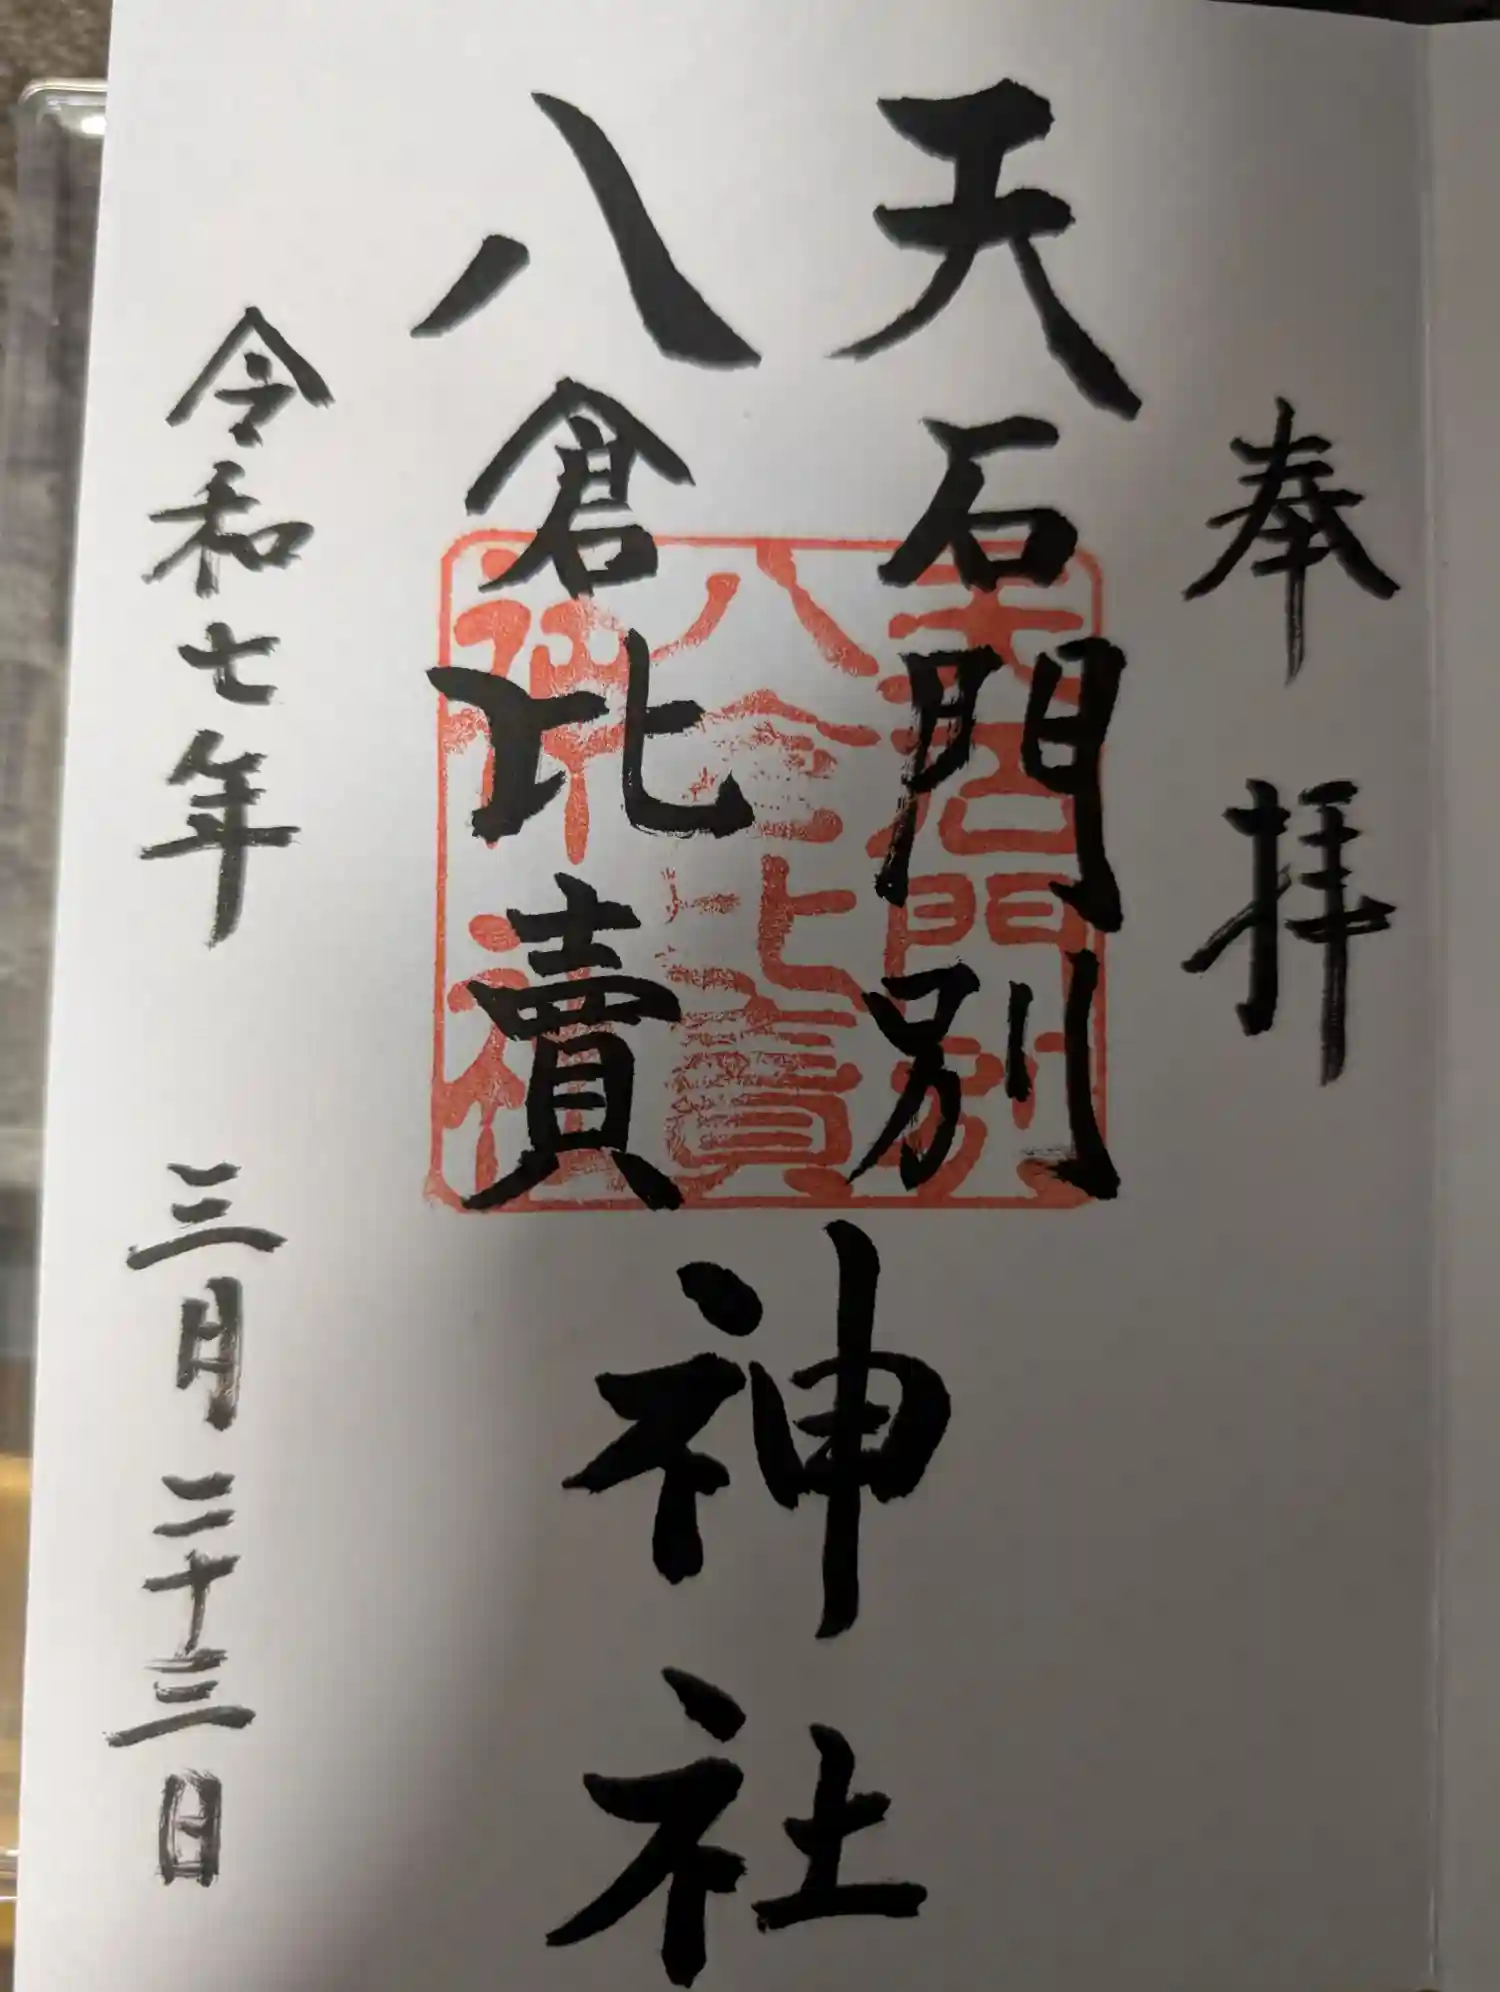 奉拝
天石門別
八倉比賣
神社
令和七年 三月二十三日
天石門別
八倉比賣
神社